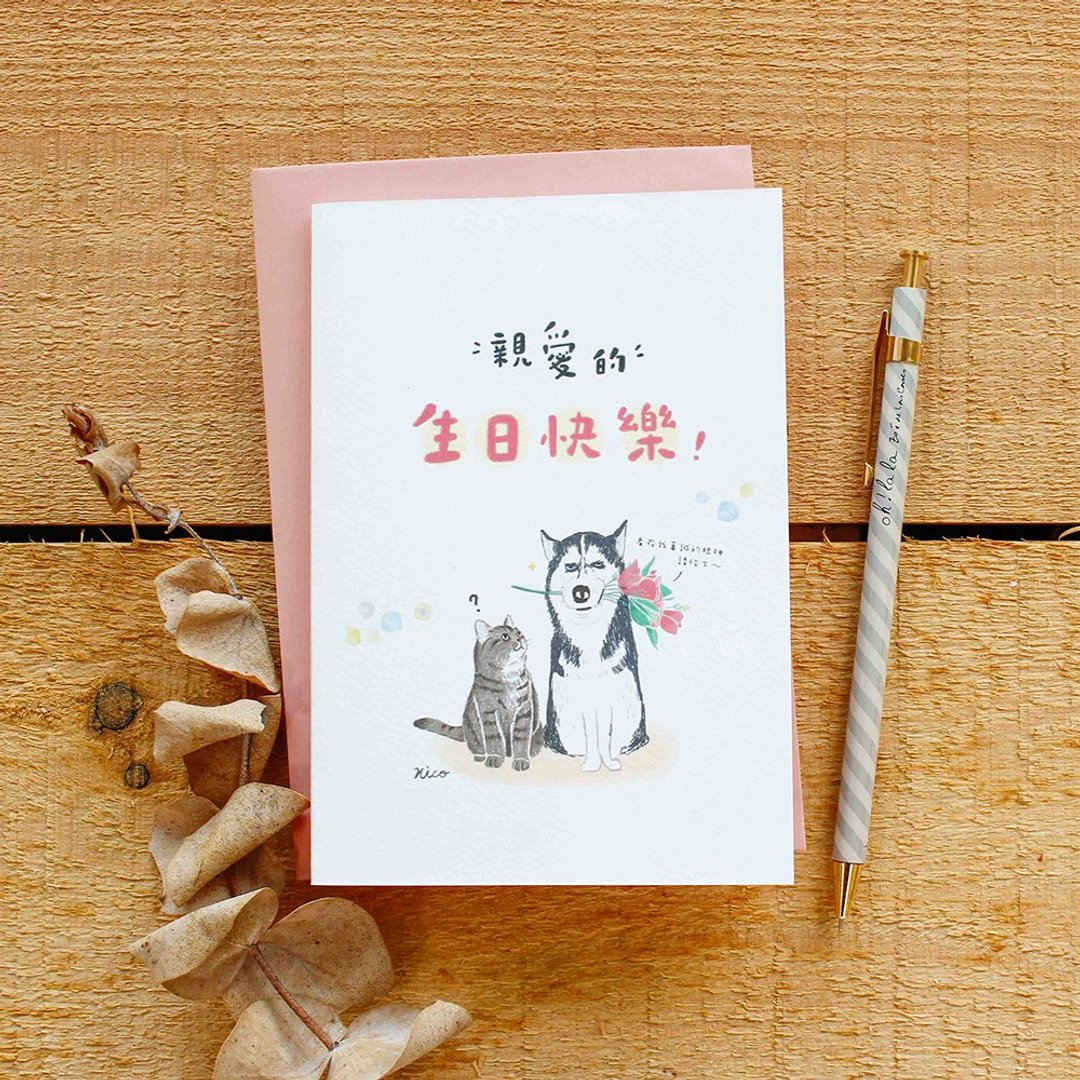 親愛的
生日快樂!
看在我真誠的眼神
請收下~
?
Nico
oh! lala